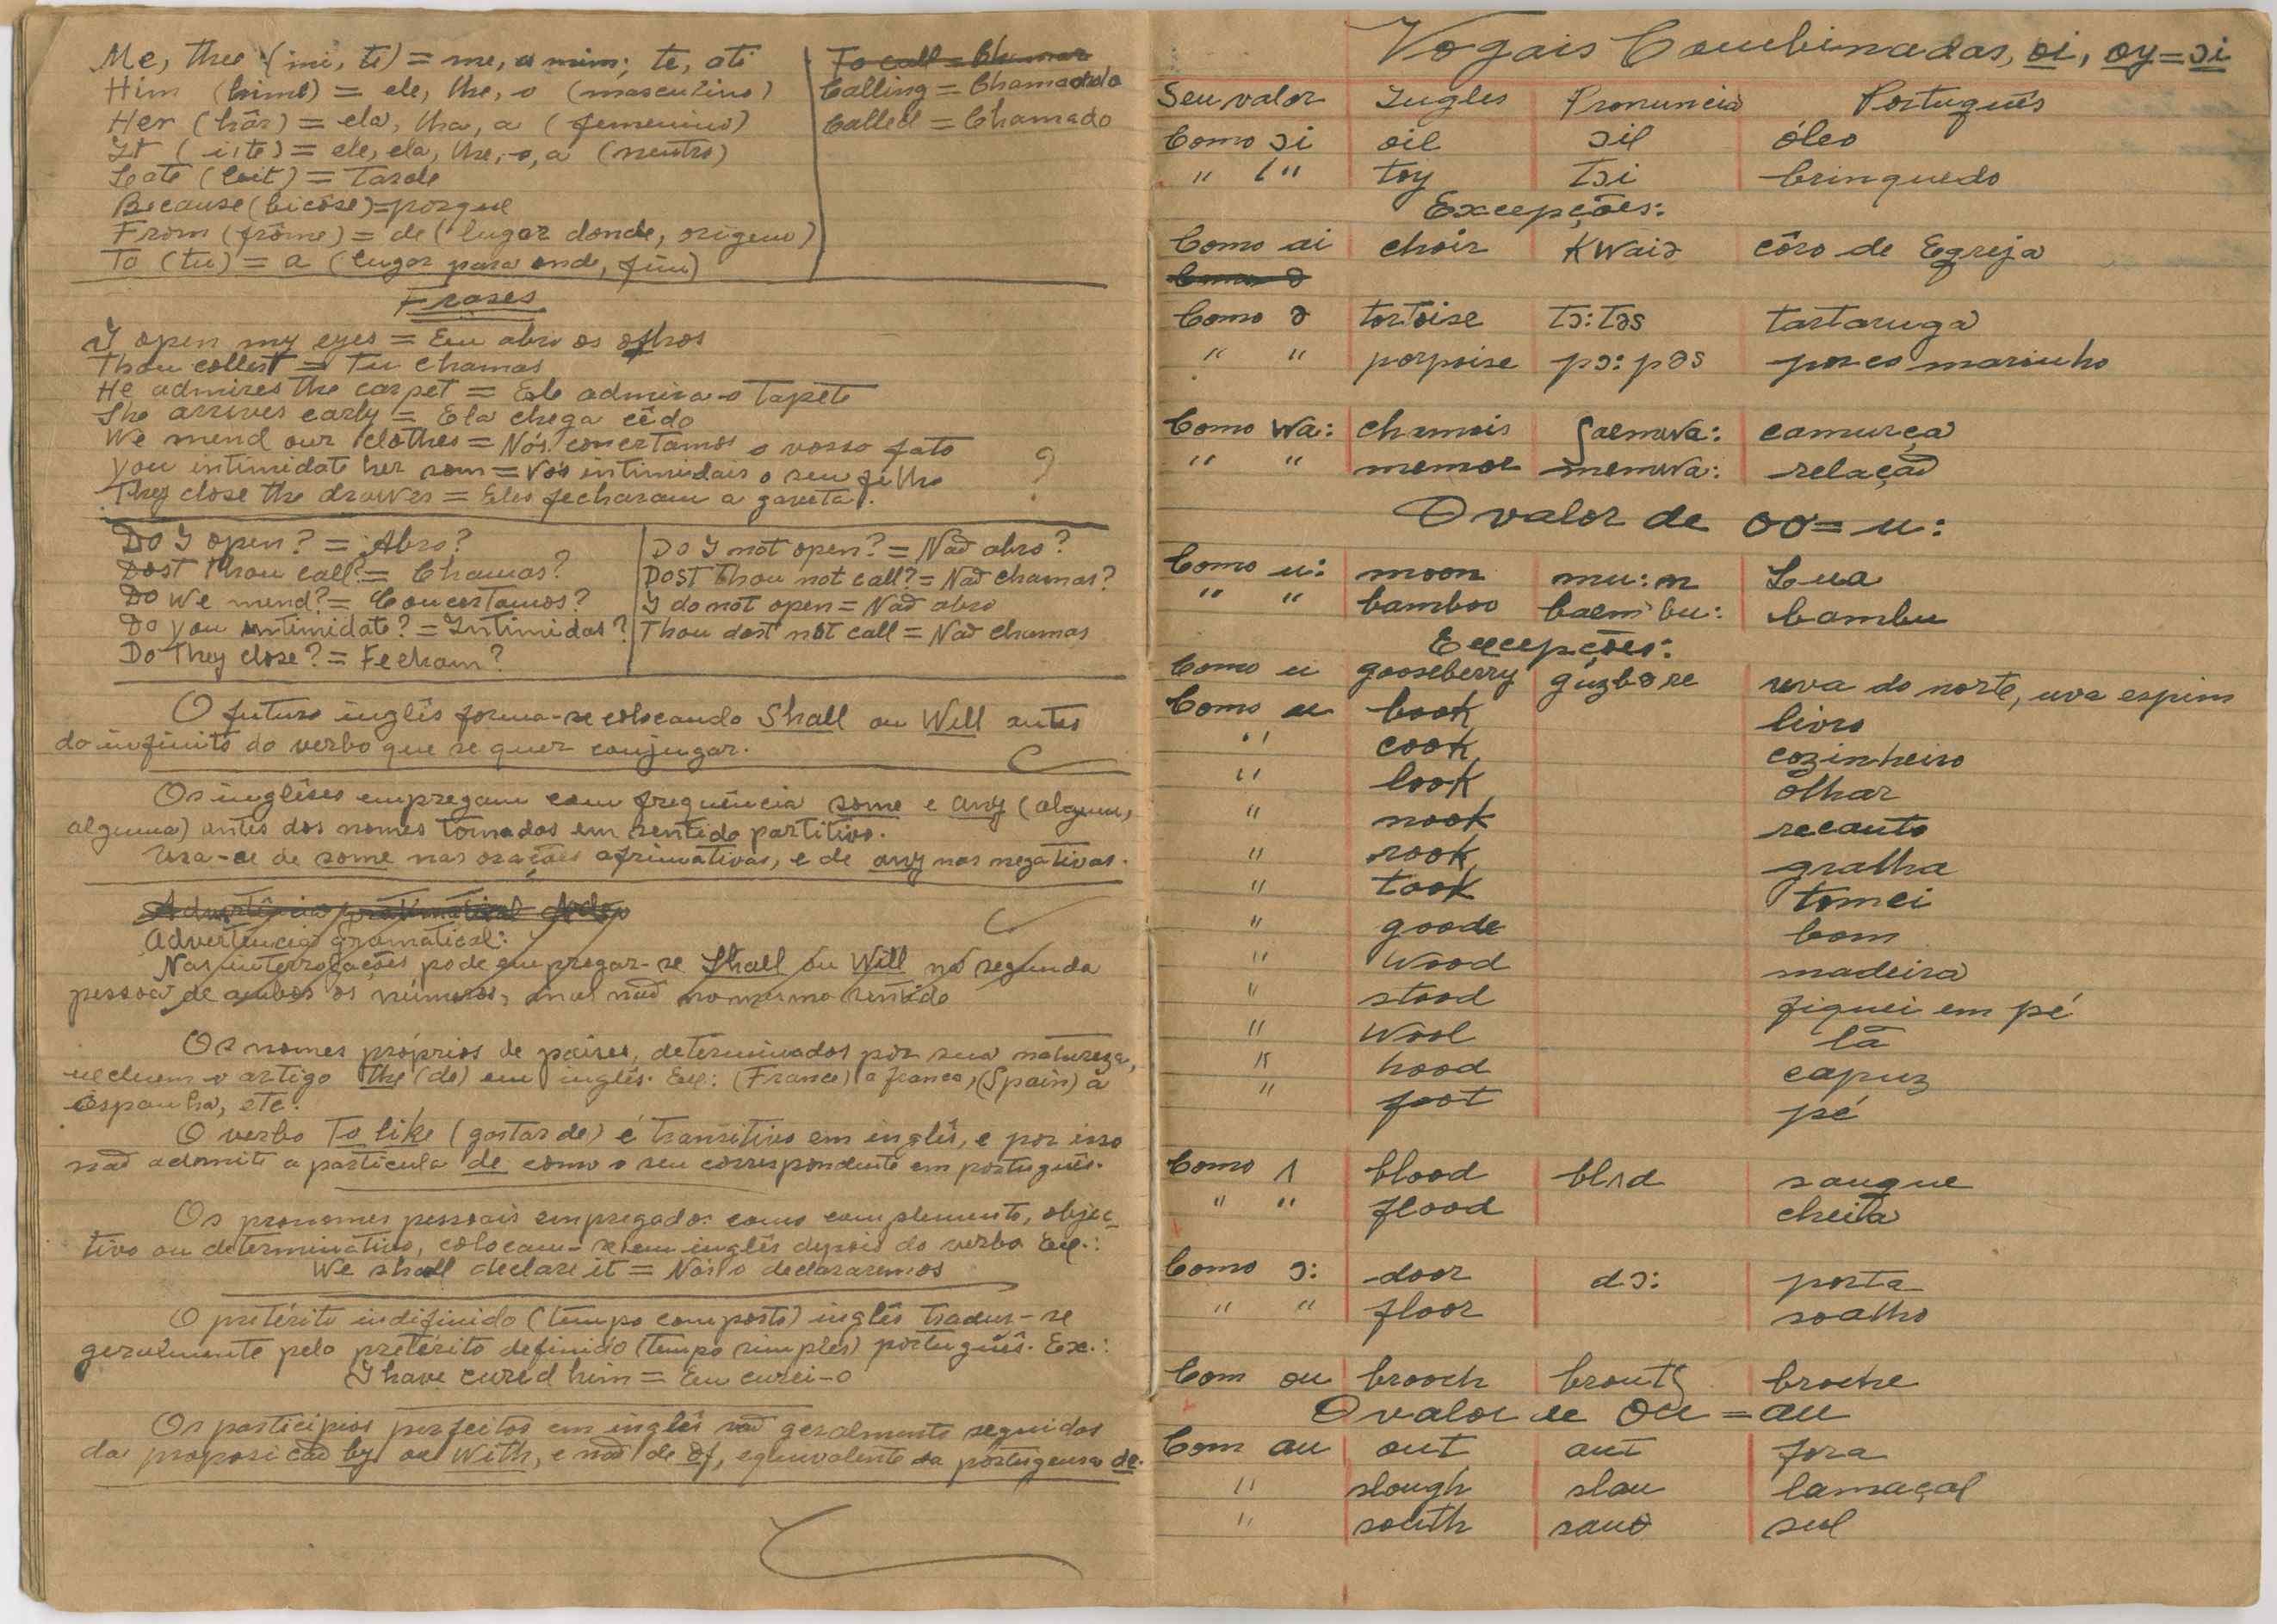 Me, thee (mi, ti) = me, a mim; te, ati
Him (hime) = ele, lhe, o (masculino)
Her (hâr) = ela, lha, a (femenino)
It (iite) = ele, ela, lhe, o, a (neutro)
Late (leit) = Tarde
Because (bicóse) = porque
From (frôme) = de (lugar donde, origem)
To (tu) = a (lugar para onde, fim)
To call = Chamar
Calling = Chamado
Called = Chamado
Frases
I open my eyes = Eu abro os olhos
Thou callest = Tu chamas
He admires the carpet = Ele admira o Tapete
She arrives early = Ela chega cêdo
We mend our clothes = Nós concertamos o vosso fato
You intimidate her son = Vós intimidais o seu filho
They close the drawer = Eles fecharam a gaveta. ?
Do I open? = Abro?
Dost Thou call? = Chamas?
Do We mend? = Concertamos?
Do you intimidate? = Intimidas?
Do They close? = Fecham?
Do I not open? = Não abro?
Dost Thou not call? = Não chamas?
I do not open = Não abro
Thou dost not call = Não chamas
O futuro inglês forma-se colocando Shall ou Will antes
do infinito do verbo que se quer conjugar.
Os inglêses empregam com frequência some e any (algum,
alguma) antes dos nomes tomados em sentido partitivo.
Usa-se de some nas orações afirmativas, e de any nas negativas.
Advertência gramatical
Advertência gramatical:
Nas interrogações pode empregar-se Shall ou Will na segunda
pessoa de ambos os números, mas não no mesmo sentido
Os nomes próprios de paises, determinados por sua natureza,
excluem o artigo the (de) em inglês. Ex: (France) a frança, (Spain) a
espanha, etc.
O verbo To like (gostar de) é transitivo em inglês, e por isso
não admite a particula de como o seu correspondente em português.
Os pronomes pessoais empregados como complemento, objec-
tivo ou determinativo, colocam-se em inglês depois do verbo Ex.:
We shall declare it = Nós o declararemos
O pretérito indifinido (tempo composto) inglês traduz-se
geralmente pelo pretérito definido (tempo simples) português. Ex.:
I have cured him = Eu curei-o
Os participios perfeitos em inglês são geralmente seguidos
da proposicão by ou With, e não de Of, equivalente da portuguesa de.
Vogais Combinadas, oi, oy = ɔi
Seu valor Ingles Pronuncia Português
Como ɔi oil ɔil óleo
" " toy Tɔi brinquedo
Excepções:
Como ai choir Kwaiə côro de Egreja
Como ə
Como ə tortoise Tɔ:Təs tartaruga
" " porpoise pɔ:pəs porco marinho
Como wa: chamois ʃaemwa: camurça
" " memoe memwa: relação
O valor de oo = u:
Como u: moon mu:n Lua
" " bamboo baembu: bambu
Excepções:
Como u gooseberry guzbəre uva do norte, uva espim
Como u book livro
" cook cozinheiro
" look ôlhar
" nook recanto
" rook gralha
" took tomei
" goode bom
" Wood madeira
" stood fiquei em pé
" Wool lã
" hood capuz
" foot pé
Como ʌ blood blʌd sangue
" " flood cheita
Como ɔ: door dɔ: porta
" " floor soalho
Com ou brooch broutʃ broche
O valor de Ou = au
Com au out aut fora
" slough slau lamaçal
" south sauθ sul